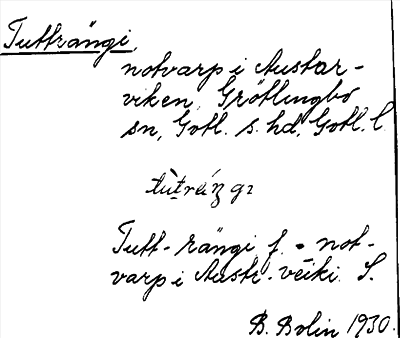 Tutträngi,
notvarp i Austar-
viken, Grötlingbo
sn, Gotl. s. hd, Gotl. l.
Tutt-rängi f. = not-
varp i Austr-veiki. S.
B. Bolin 1930.